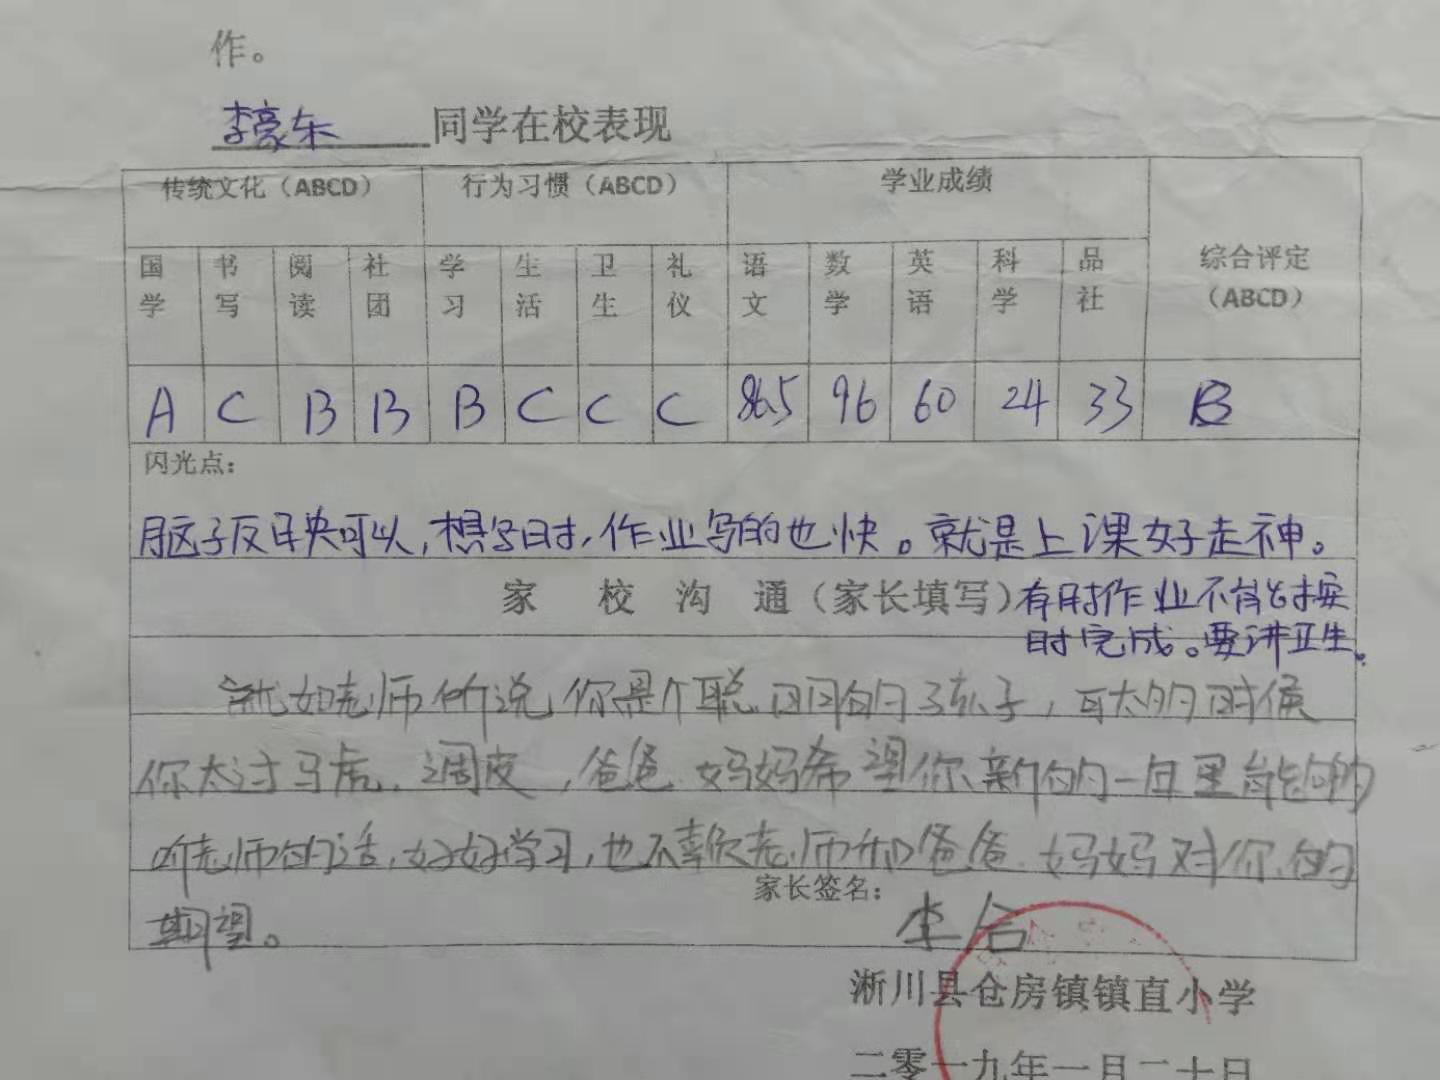 作。
李豪东 同学在校表现
传统文化（ABCD） 行为习惯（ABCD） 学业成绩 综合评定（ABCD）
国学 书写 阅读 社团 学习 生活 卫生 礼仪 语文 数学 英语 科学 品社
A C B B B C C C 86.5 96 60 24 33 B
闪光点：
脑子反映可以，想写时，作业写的也快。就是上课好走神。
家 校 沟 通（家长填写）有时作业不能按
时完成。要讲卫生。
就如老师所说，你是个聪明的孩子，可大多的时候
你太过马虎，调皮，爸爸妈妈希望你新的一年里能够
听老师的话，好好学习，也不辜负老师和爸爸妈妈对你的
期望。
家长签名：李合
淅川县仓房镇镇直小学
二零一九年一月二十日